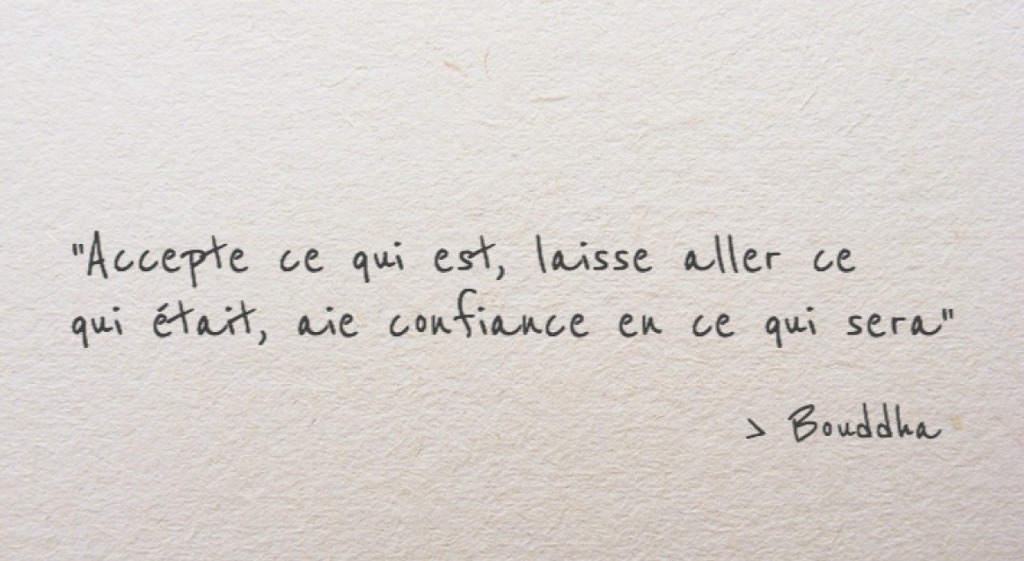 "Accepte ce qui est, laisse aller ce
qui était, aie confiance en ce qui sera"
> Bouddha